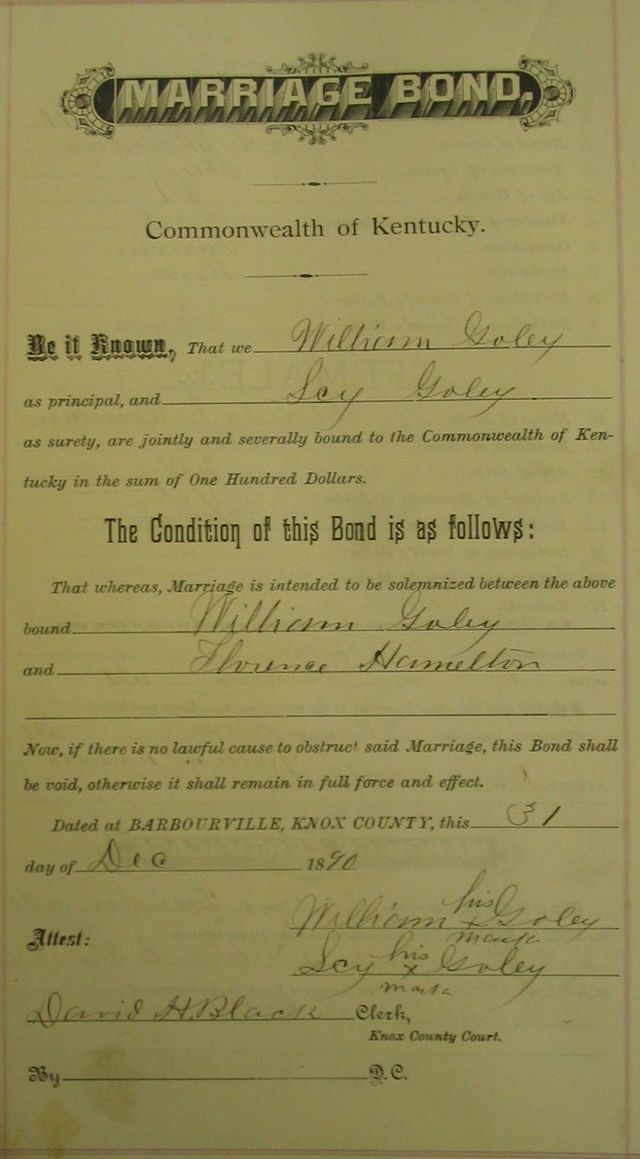 MARRIAGE BOND.
Commonwealth of Kentucky.
Be it Known, That we William Goley
as principal, and Scy Goley
as surety, are jointly and severally bound to the Commonwealth of Ken-
tucky in the sum of One Hundred Dollars.
The Condition of this Bond is as follows:
That whereas, Marriage is intended to be solemnized between the above
bound William Goley
and Florence Hamelton
Now, if there is no lawful cause to obstruct said Marriage, this Bond shall
be void, otherwise it shall remain in full force and effect.
Dated at BARBOURVILLE, KNOX COUNTY, this 31
day of Dec 1890
William his x mark Goley
Attest:
Scy his x mark Goley
David H. Black Clerk,
Knox County Court.
By D.C.